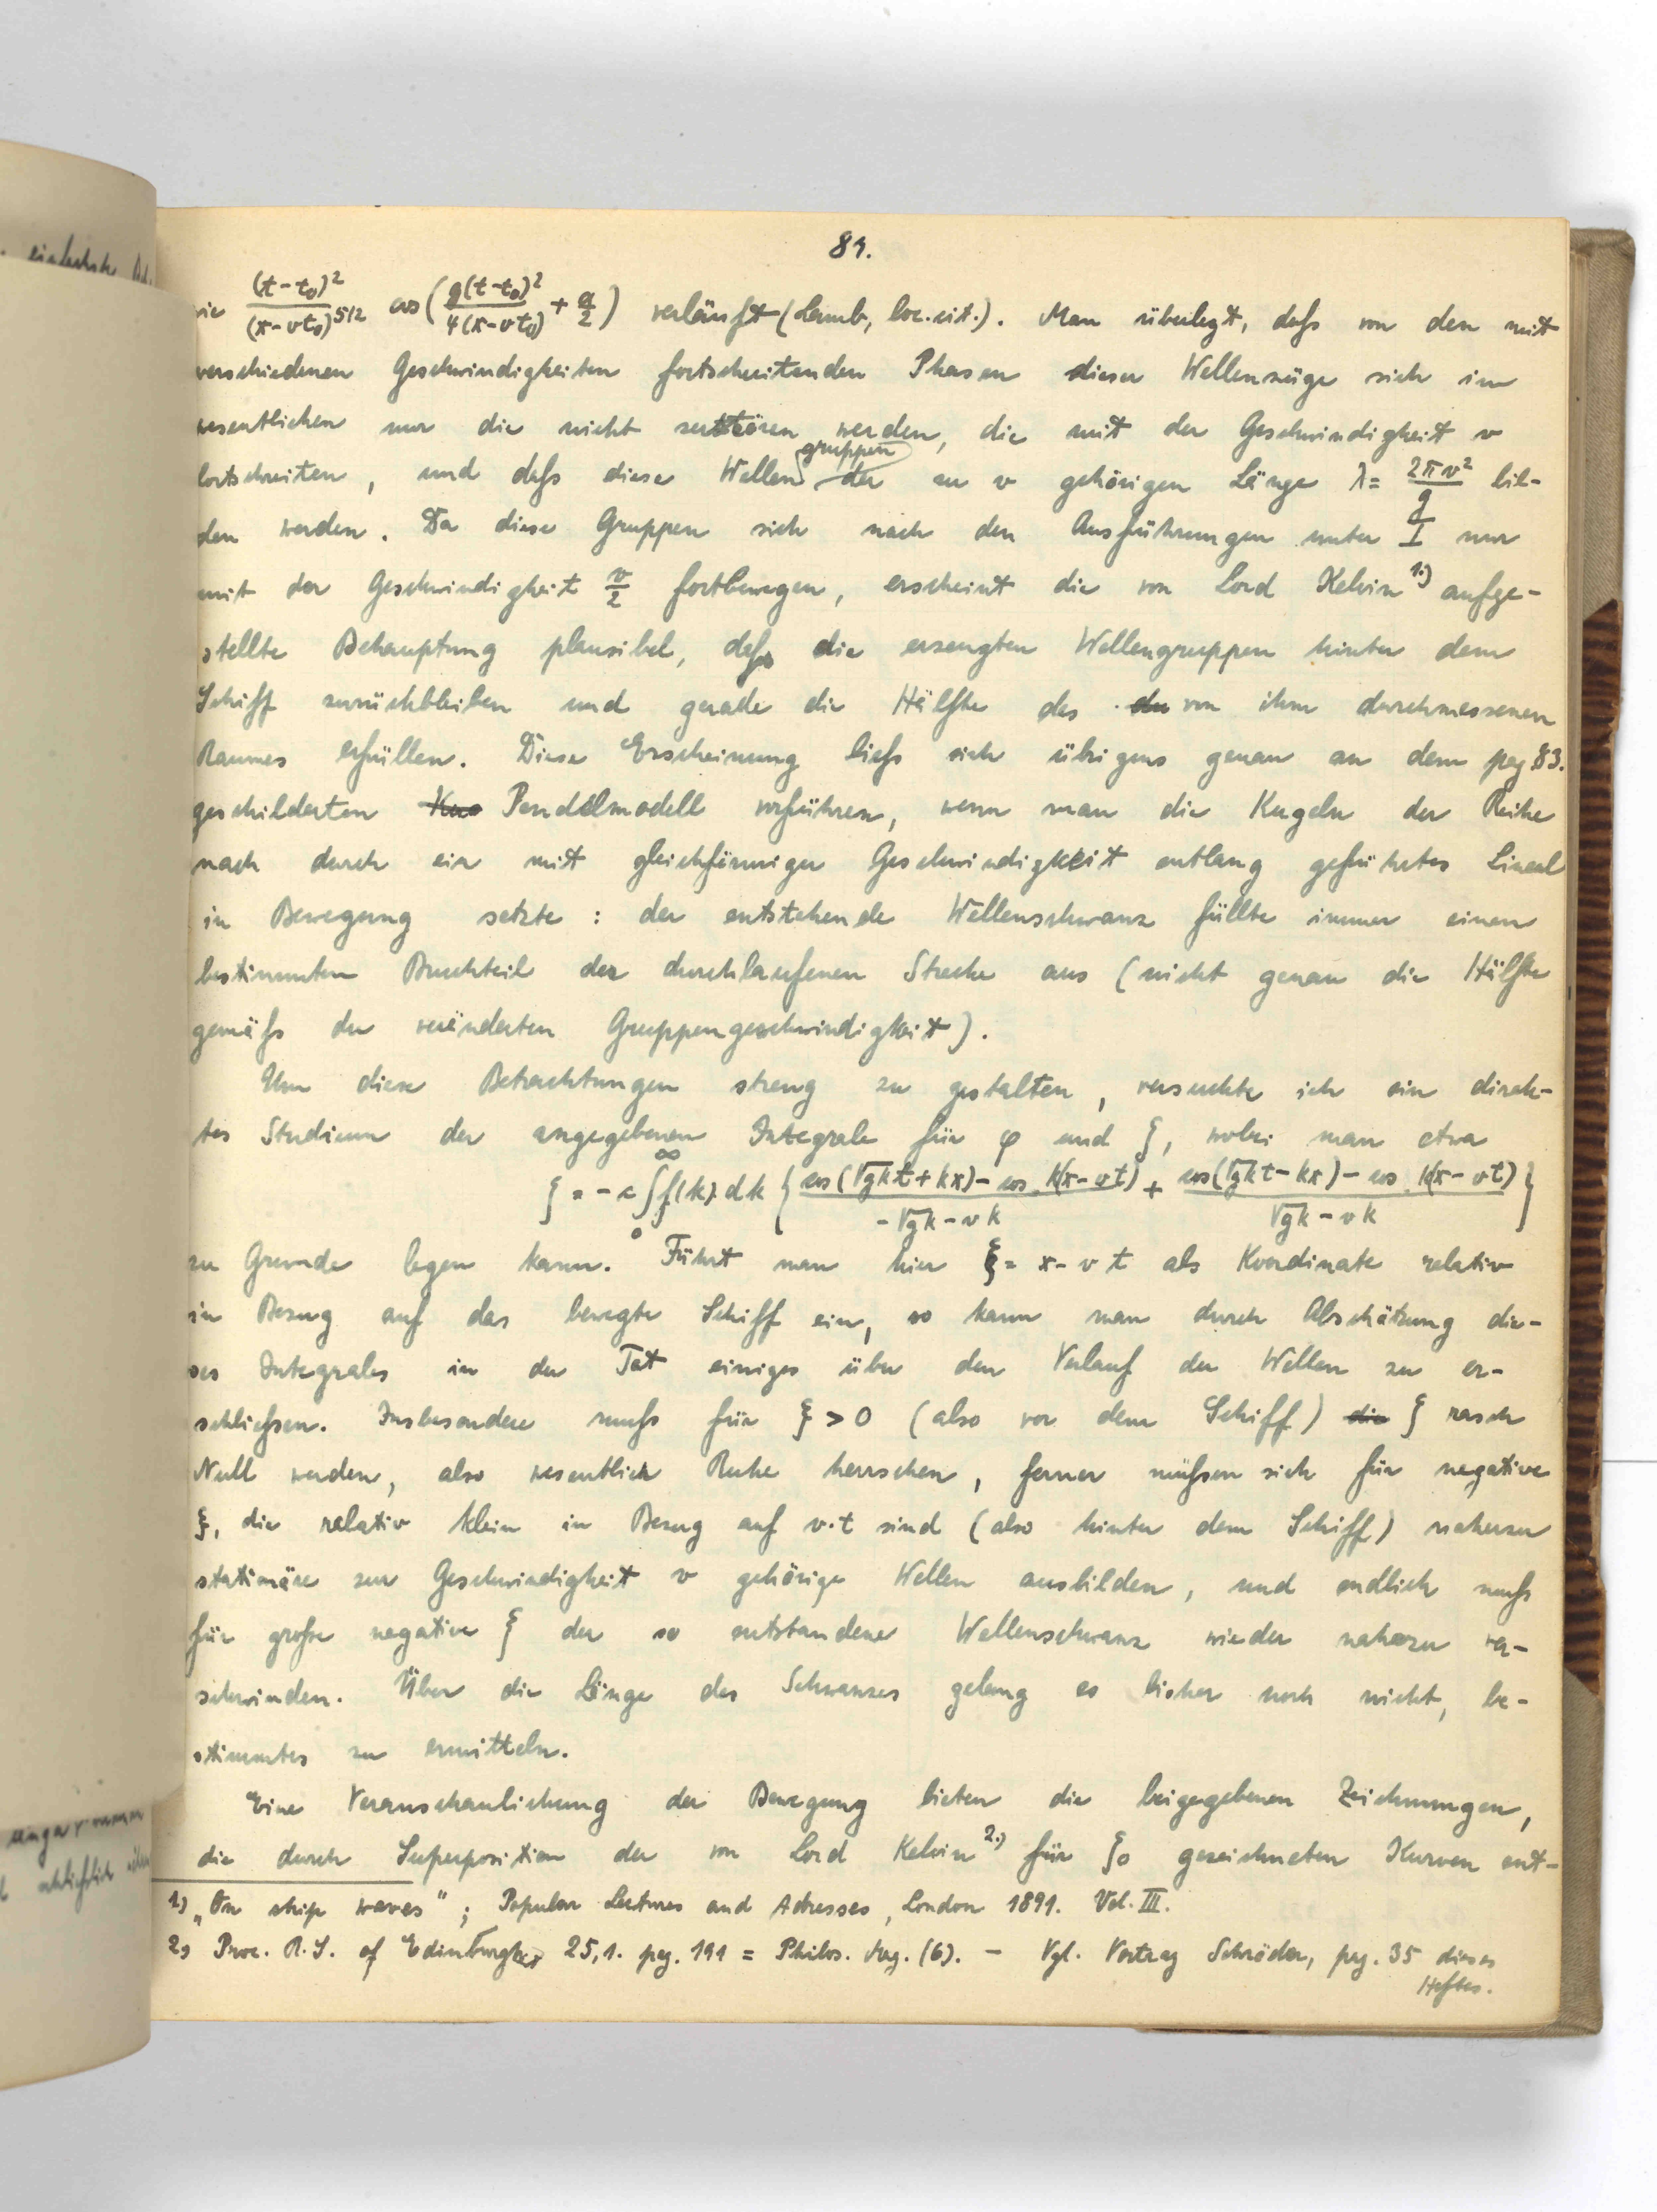 89.
wie (t-t₀)²/(x-vt₀)^5/2 cos(g(t-t₀)²/4(x-vt₀) + α/2) verläuft (Lamb, loc. cit.). Man überlegt, dafs von den mit
verschiedenen Geschwindigkeiten fortschreitenden Phasen dieser Wellenzüge sich im
wesentlichen nur die nicht zerstören werden, die mit der Geschwindigkeit v
fortschreiten, und dafs diese Wellengruppen der zu v gehörigen Länge λ = 2πv²/g bil-
den werden. Da diese Gruppen sich nach den Ausführungen unter I nur
mit der Geschwindigkeit v/2 fortbewegen, erscheint die von Lord Kelvin 1.) aufge-
stellte Behauptung plausibel, dafs die erzeugten Wellengruppen hinter dem
Schiff zurückbleiben und gerade die Hälfte des von ihm durchmessenen
Raumes erfüllen. Diese Erscheinung liefs sich übrigens genau an dem pag. 83.
geschilderten Pendelmodell vorführen, wenn man die Kugeln der Reihe
nach durch ein mit gleichförmiger Geschwindigkeit entlang geführtes Lineal
in Bewegung setzte : der entstehende Wellenschwanz füllte immer einen
bestimmten Bruchteil der durchlaufenen Strecke aus (nicht genau die Hälfte
gemäfs der veränderten Gruppengeschwindigkeit).
Um diese Betrachtungen streng zu gestalten, versuchte ich ein direk-
tes Studium der angegebenen Integrale für φ und ζ, wobei man etwa
ζ = -c ∫₀^∞ f(k) dk { cos(√gk t + kx) - cos k(x-vt) / -√gk - vk + cos(√gk t - kx) - cos k(x-vt) / √gk - vk }
zu Grunde legen kann. Führt man hier ξ = x - vt als Koordinate relativ
in Bezug auf das bewegte Schiff ein, so kann man durch Abschätzung die-
ses Integrales in der Tat einiges über den Verlauf der Wellen zu er-
schliefsen. Insbesondere mufs für ξ > 0 (also vor dem Schiff) ζ rasch
Null werden, also wesentlich Ruhe herrschen, ferner müfsen sich für negative
ξ, die relativ klein in Bezug auf v·t sind (also hinter dem Schiff) nahezu
stationäre zur Geschwindigkeit v gehörige Wellen ausbilden, und endlich mufs
für grofse negative ξ der so entstandene Wellenschwanz wieder nahezu ver-
schwinden. Über die Länge des Schwanzes gelang es bisher noch nicht, be-
stimmtes zu ermitteln.
Eine Veranschaulichung der Bewegung bieten die beigegebenen Zeichnungen,
die durch Superposition der von Lord Kelvin 2.) für ζ₀ gezeichneten Kurven ent-
1) „On ship waves"; Popular Lectures and Adresses, London 1891. Vol. III.
2) Proc. R. S. of Edinburgh 25,1. pag. 191 = Philos. Mag. (6). — Vgl. Vortrag Schröder, pag. 35 dieses
Heftes.